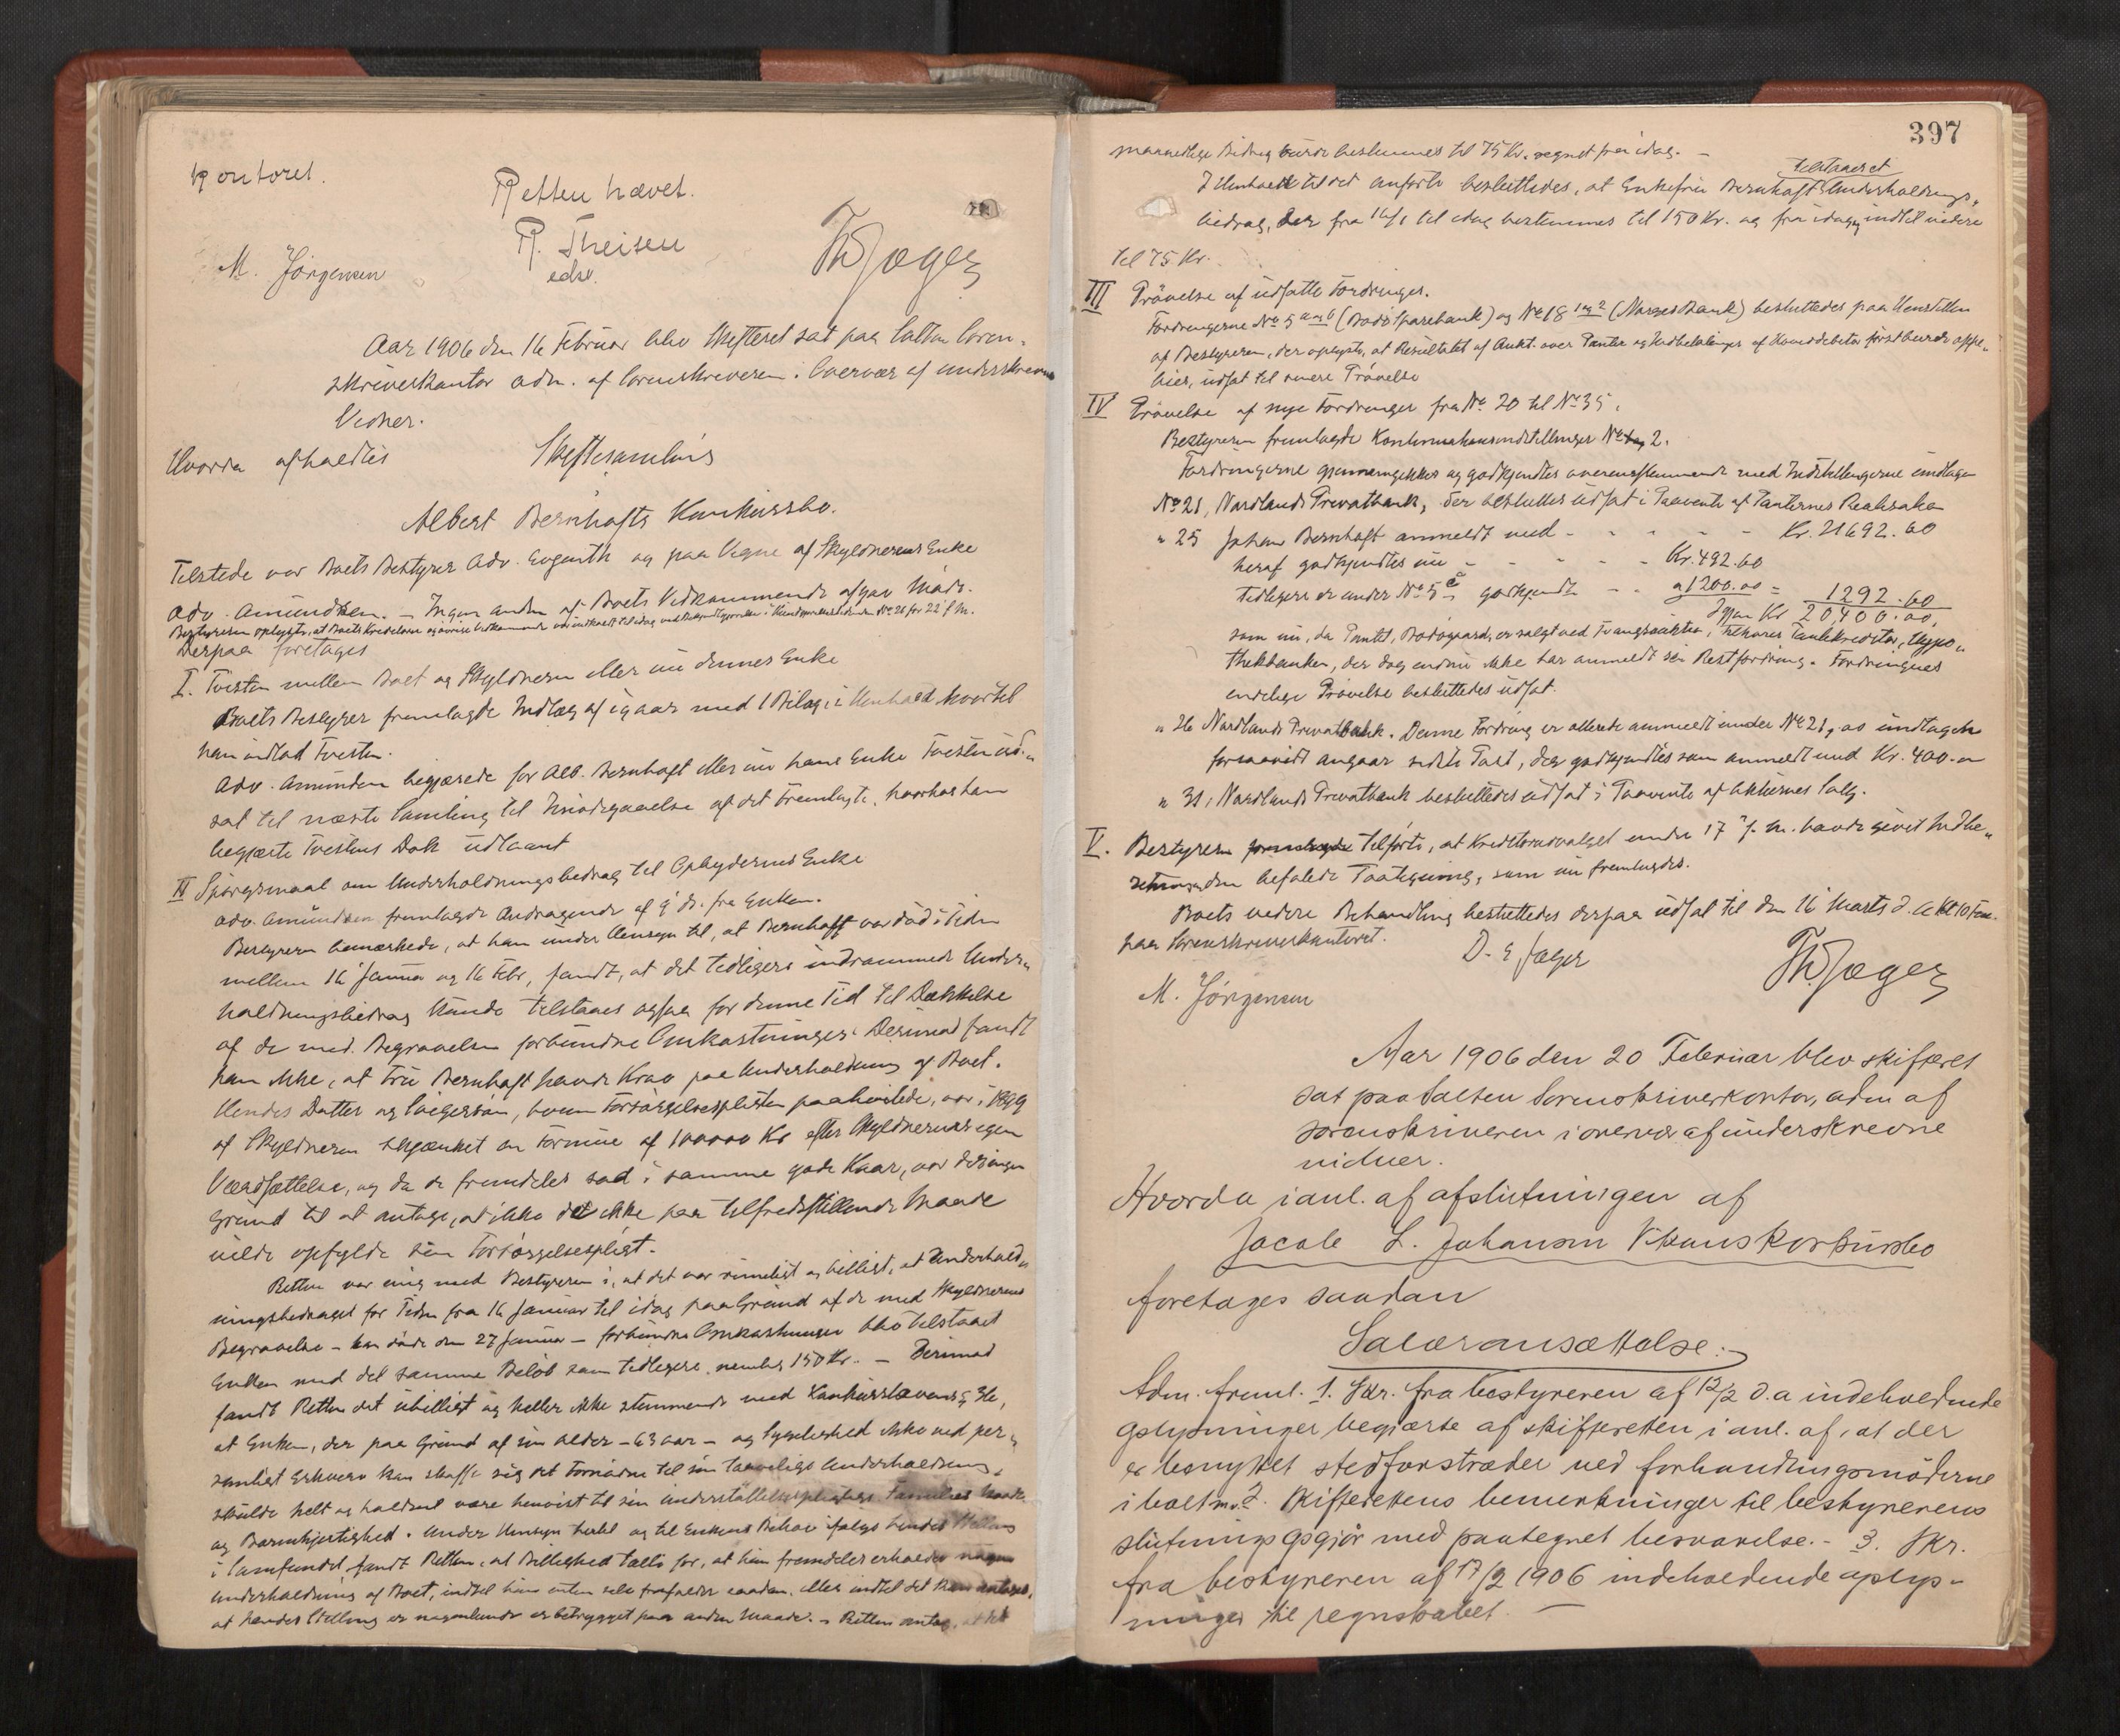 kontoret.
Retten hævet.
R. Theisen
edsv.
M. Jörgensen
ThJæger
Aar 1906 den 16 Februar blev Skifteret sat paa Salten Soren-
skriverkontor adm. af Sorenskriveren i Overvær af underskrevne
Vidner.
Hvorda afholdtes Skiftesamling
Albert Bernhofts Konkursbo.
Tilstede var Boets Bestyrer Adv. Evjenth og paa Vegne af Skyldnerens Enke
Adv. Amundsen. – Ingen anden af Boets Vedkommende afgav Møde.
Bestyreren oplyste, at Boets Kreditorer og øvrige Vedkommende var indkaldt til idag ved Bekjendtgjørelse i Kundgjørelsestidende No 26 for 22 f. M.
Derpaa foretages
I. Tvisten mellem Boet og Skyldneren eller nu dennes Enke
Boets Bestyrer fremlagde Indlæg af igaar med 1 Bilag, i Henhold hvortil
han indlod Tvisten.
Adv. Amundsen begjærede for Alb. Bernhoft eller nu hans Enke Tvisten ud-
sat til næste Samling til Imødegaaelse af det Fremlagte, hvorhos han
begjærte Tvistens Dok. udlaant
II Spörgsmaal om Underholdningsbidrag til Opbyderens Enke
Adv. Amundsen fremlagde Andragende af 9 ds. fra Enken.
Bestyreren bemærkede, at han under Hensyn til, at Bernhoft var död i Tiden
mellem 16 Januar og 16 Febr, fandt, at det tidligere indrømmede Under-
holdningsbidrag kunde tilstaaes ogsaa for denne Tid til Dækkelse
af de med Begravelsen forbundne Omkostninger. Derimod fandt
han ikke, at Fru Bernhoft havde Krav paa Underholdning af Boet.
Hendes Datter og Svigersøn, hvem Forsörgelsespligten paahvilede, var i 1899
af Skyldneren skjænket en Formue af 100000 Kr efter Skyldnerens egen
Værdsættelse, og da de fremdeles sad i samme gode Kaar, var der ingen
Grund til at antage, at ikke de ikke paa tilfredsstillende Maade
vilde opfylde sin Forsörgelsespligt.
Retten var enig med Bestyreren i, at det var rimeligt og billigt, at Underhold-
ningsbidraget for Tiden fra 16 Januar til idag paa Grund af de med Skyldnerens
Begravelse – han döde den 27 Januar – forbundne Omkostninger blev tilstaaet
Enken med det samme Belöb som tidligere, nemlig 150 Kr. – Derimod
fandt Retten det ubilligt og heller ikke stemmende med Konkurslovens § 36,
at Enken, der paa Grund af sin Alder – 63 aar – og Sygelighed ikke ved per-
sonligt Erhverv kan skaffe sig det Fornødne til sin tarvelige Underholdning,
skulde helt og holdent være henvist til sin understøttelsespligtige Families Naade
og Barmhjertighed. Under Hensyn hertil og til Enkens Behov ifølge hendes Stilling
i Samfundet fandt Retten, at Billighed talte for, at hun fremdeles erholder nogen
Underholdning af Boet, indtil hun enten selv frafalder saadan, eller indtil det kan antages,
at hendes Stilling er nogenlunde er betrygget paa anden Maade. – Retten antog, at det
397
maanedlige Bidrag burde bestemmes til 75 Kr. regnet fra idag. –
tilstaaet
I Henhold til det Anførte besluttedes, at Enkefru Bernhoft Underholdnings-
bidrag, der fra 16/1 til idag bestemmes til 150 Kr. og fra idag indtil videre
til 75 Kr.
III Prövelse af udsatte Fordringer.
Fordringerne No 5 a og b (Bodö Sparebank) og No 18 1 og 2 (Norges Bank) besluttedes paa Henstillen
af Bestyreren, der oplyste, at Resultatet af Aukt. over Panter og Indbetalinger af Hoveddebitor först burde oppe-
bies, udsat til senere Prövelse
IV Prövelse af nye Fordringer fra No. 20 til No 35.
Bestyreren fremlagde Konkursboindstillinger No 2.
Fordringerne gjennemgikkes og godkjendtes overensstemmende med Indstillingerne undtagen
No 21, Nordlands Privatbank, der besluttes udsat i Paavente af Panternes Realisation
" 25 Johan Bernhoft anmeldt med – – – Kr. 21692.60
heraf godkjendtes nu – – – Kr. 492.60
tidligere er under No 5 c godkjendt – – " 1200.00 = 1292.60
Igjen Kr 20,400.00,
som nu, da Pantet, Bodögaard, er solgt ved Tvangsauktion, tilkommer Pantekreditor, Hypo-
thekbanken, der dog endnu ikke har anmeldt sin Restfordring. Fordringens
endelige Prövelse besluttedes udsat.
" 26 Nordlands Privatbank. Denne Fordring er allerede anmeldt under No 21, as undtagen
forsaavidt angaar sidste Post, der godkjendtes som anmeldt med Kr. 400.–
" 31, Nordlands Privatbank besluttedes udsat i Paavente af Aktiernes Salg.
V. Bestyreren fremlagde tilförte, at Kreditorudvalget under 17 f. M. havde givet Indbe-
retningen den befalede Paategning, som nu fremlagdes.
Boets videre Behandling besluttedes derpaa udsat til den 16 Marts d. A. Kl 10 Form.
paa Sorenskriverkontoret.
D. E Jæger
ThJæger
M. Jörgensen
Aar 1906 den 20 Februar blev skifteret
sat paa Salten Sorenskriverkontor, adm af
sorenskriveren i overvær af underskrevne
vidner.
Hvorda i anl. af afslutningen af
Jacob L. Johansen Vikans Konkursbo
foretages saadan
Salæransættelse:
Adm. freml. 1. Skr. fra bestyreren af 12/2 d.a indeholdende
oplysninger begjærte af skifteretten i anl. af, at der
er benyttet stedfortræder ved forhandlingsmøderne
i boet m.v. 2. Skifterettens bemerkninger til bestyrerens
slutningsopgjør med paategnet besvarelse. – 3. Skr.
fra bestyreren af 17/2 1906 indeholdende oplys-
ninger til regnskabet. –